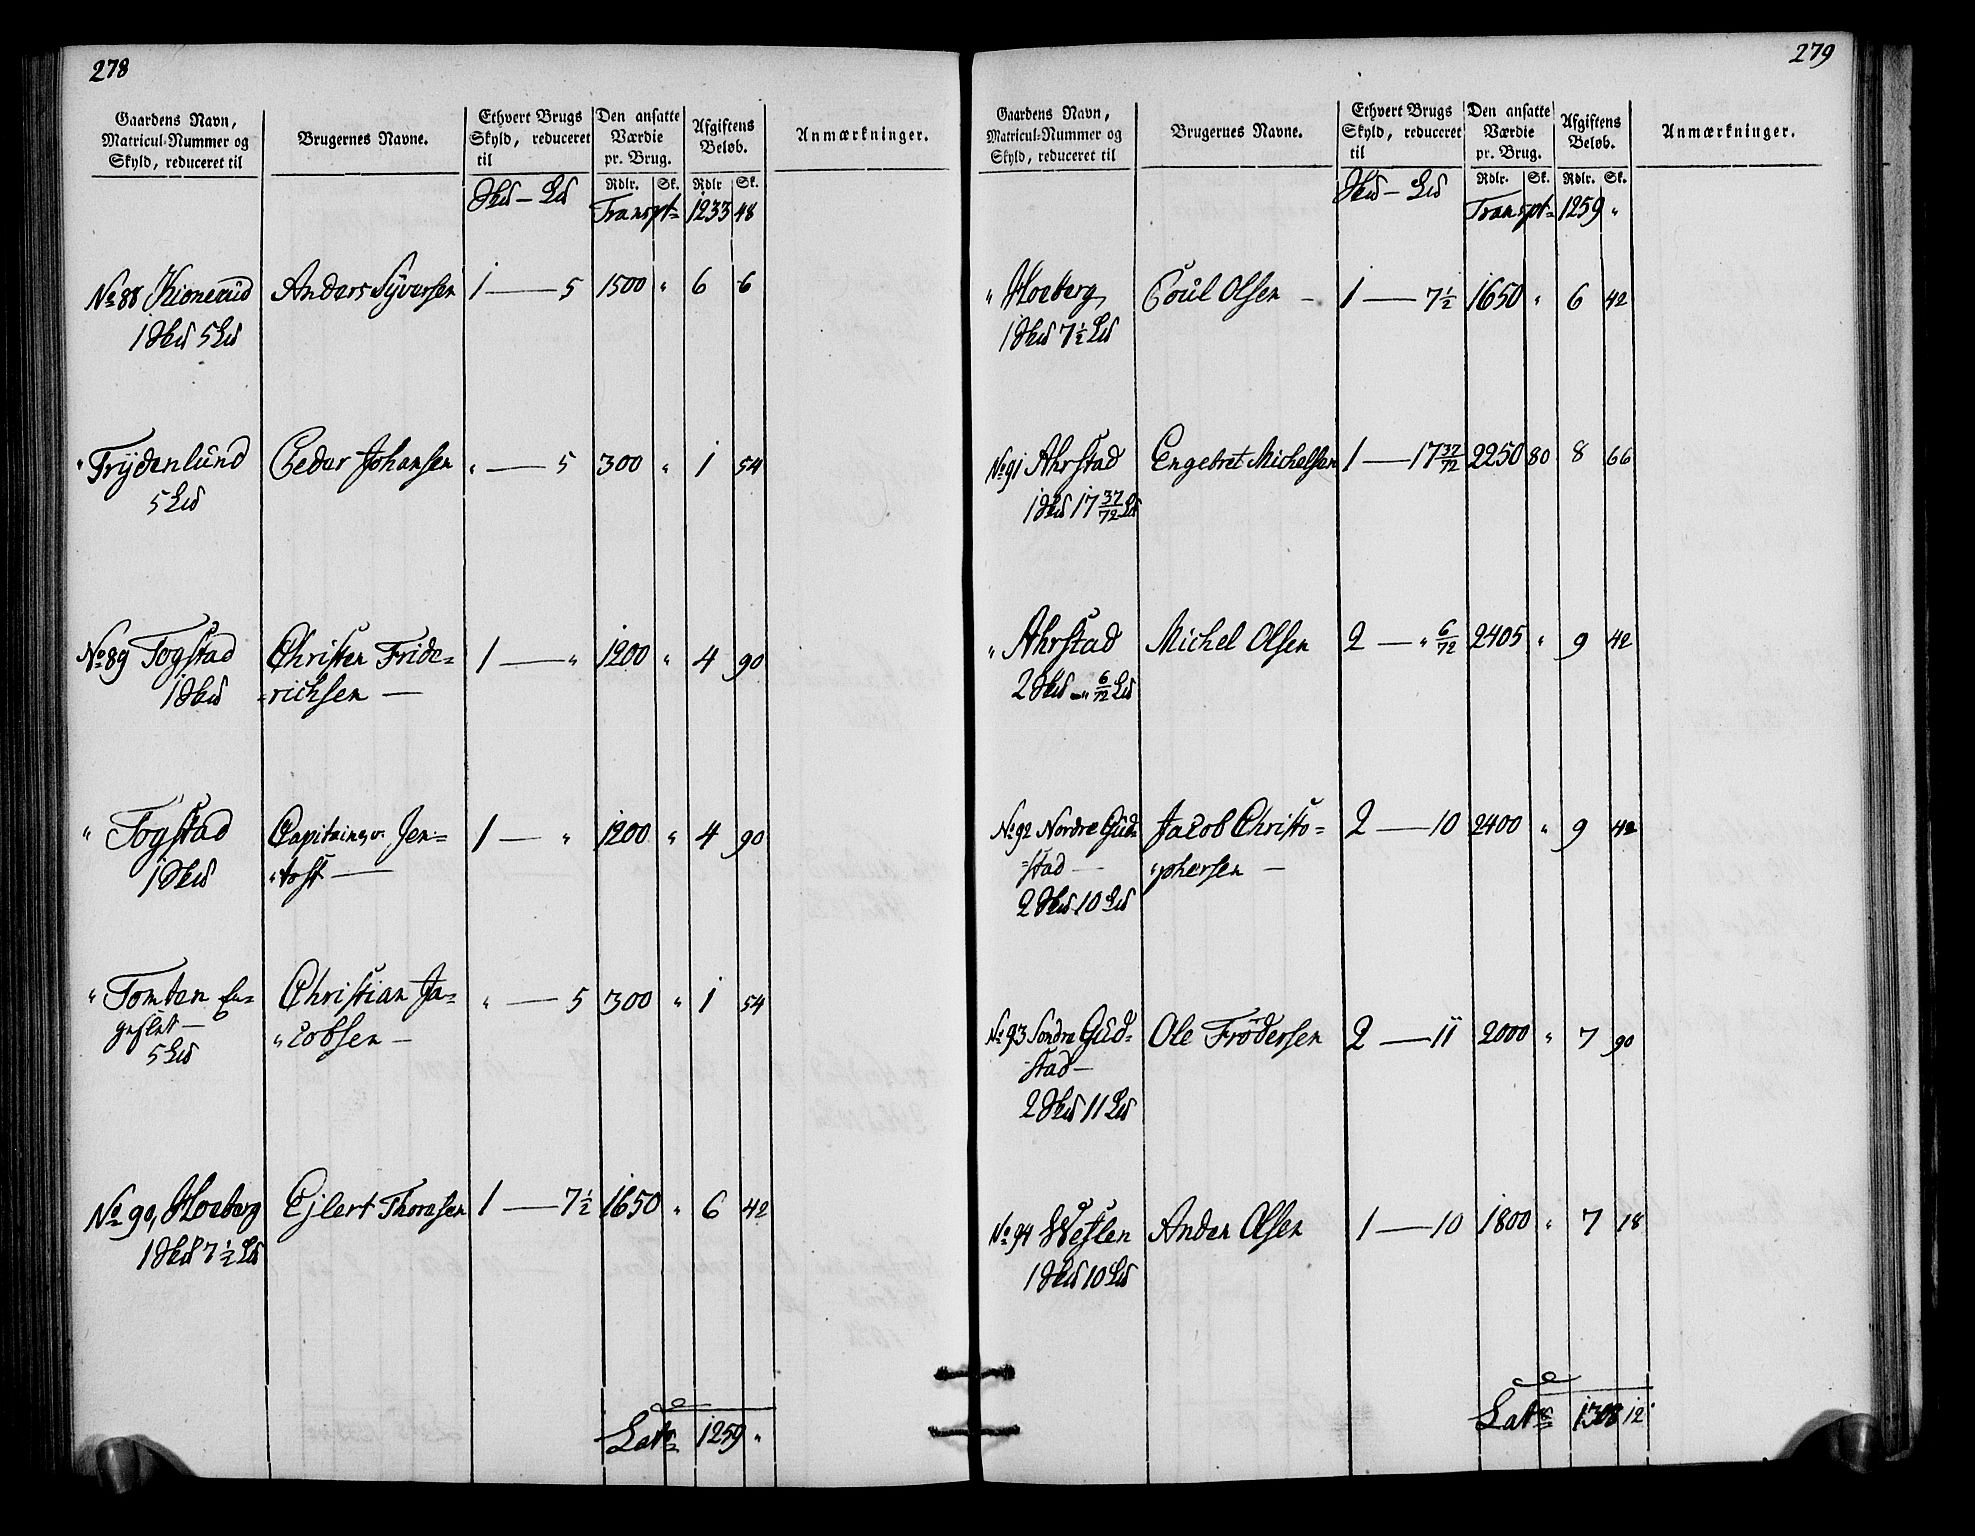 278
Gaardens Navn, Matricul-Nummer og Skyld, reduceret til | Brugernes Navne. | Ethvert Brugs Skyld, reduceret til | Den ansatte Værdie pr. Brug. | Afgiftens Beløb. | Anmærkninger.
Rdlr. | Sk. | Rdlr | Sk.
Skd — Ld | Transpt= | 1233 | 48
No 88 Kionerud | Anders Syversen | 1 — 5 | 1500 | " | 6 | 6
1 Skd 5 Ld
" Frydenlund | Peder Johansen | " — 5 | 300 | " | 1 | 54
5 Ld
No 89 Togstad | Christen Fride= | 1 — " | 1200 | " | 4 | 90
1 Skd | =richsen —
" Togstad | Capitain v. Jen= | 1 — " | 1200 | " | 4 | 90
1 Skd | "toft —
" Tomten En= | Christian Ja= | " — 5 | 300 | " | 1 | 54
geslet — | "cobsen —
5 Ld
No 90, Hoeberg | Ejlert Thoresen | 1 — 7½ | 1650 | " | 6 | 42
1 Skd 7½ Ld
Lats | 1259 | "
279
Gaardens Navn, Matricul-Nummer og Skyld, reduceret til | Brugernes Navne. | Ethvert Brugs Skyld, reduceret til | Den ansatte Værdie pr. Brug. | Afgiftens Beløb. | Anmærkninger.
Rdlr. | Sk. | Rdlr. | Sk.
Skd — Ld | Transpt= | 1259 | "
" Hoeberg | Poul Olsen — | 1 — 7½ | 1650 | " | 6 | 42
1 Skd 7½ Ld
No 91 Ahrstad | Engebret Michelsen | 1 — 17 37/72 | 2250 | 80 | 8 | 66
1 Skd 17 37/72 Ld
" Ahrstad | Michel Olsen | 2 — " 6/72 | 2405 | " | 9 | 42
2 Skd — " 6/72 Ld
No 92 Nordre Gud= | Jacob Christo= | 2 — 10 | 2400 | " | 9 | 42
=stad — | "phersen —
2 Skd 10 Ld
No 93 Søndre Gud= | Ole Frødersen | 2 — 11 | 2000 | " | 7 | 90
=stad —
2 Skd 11 Ld
No 94 Westen | Anders Olsen | 1 — 10 | 1800 | " | 7 | 18
1 Skd 10 Ld
Lats | 1308 | 12